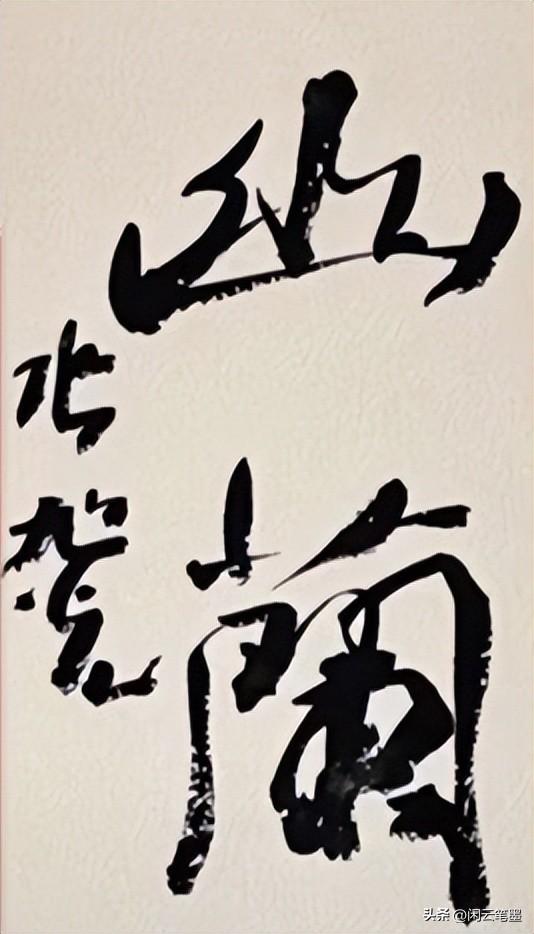 幽蘭
头条 @闲云笔墨